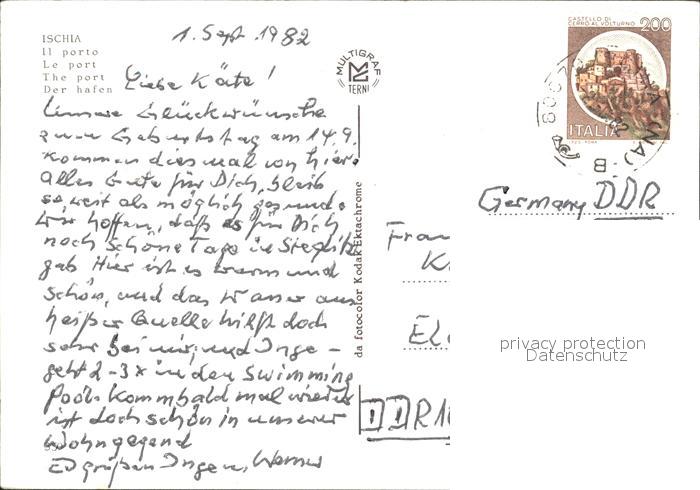 ISCHIA
Il porto
Le port
The port
Der hafen
1. Sept. 1982
Liebe Käte!
Unsere Glückwünsche
zum Geburtstag am 14.9.
kommen diesmal von hier.
Alles Gute für Dich, bleib
so weit als möglich gesund.
Wir hoffen, daß es für Dich
noch schöne Tage in Steglitz
gab. Hier ist es warm und
schön, und das Wasser aus
heißer Quelle hilft doch
sehr bei mir, und Inge
geht 2-3x in den Swimming
Pool. Komm bald mal wieder
ist doch schön in unserer
Wohngegend
Es grüßen Inge u. Werner
MULTIGRAF
TERNI
da fotocolor Kodak Ektachrome
CASTELLO DI
CERRO AL VOLTURNO
200
ITALIA
Germany DDR
Frau
K
El
DDR 1
privacy protection
Datenschutz